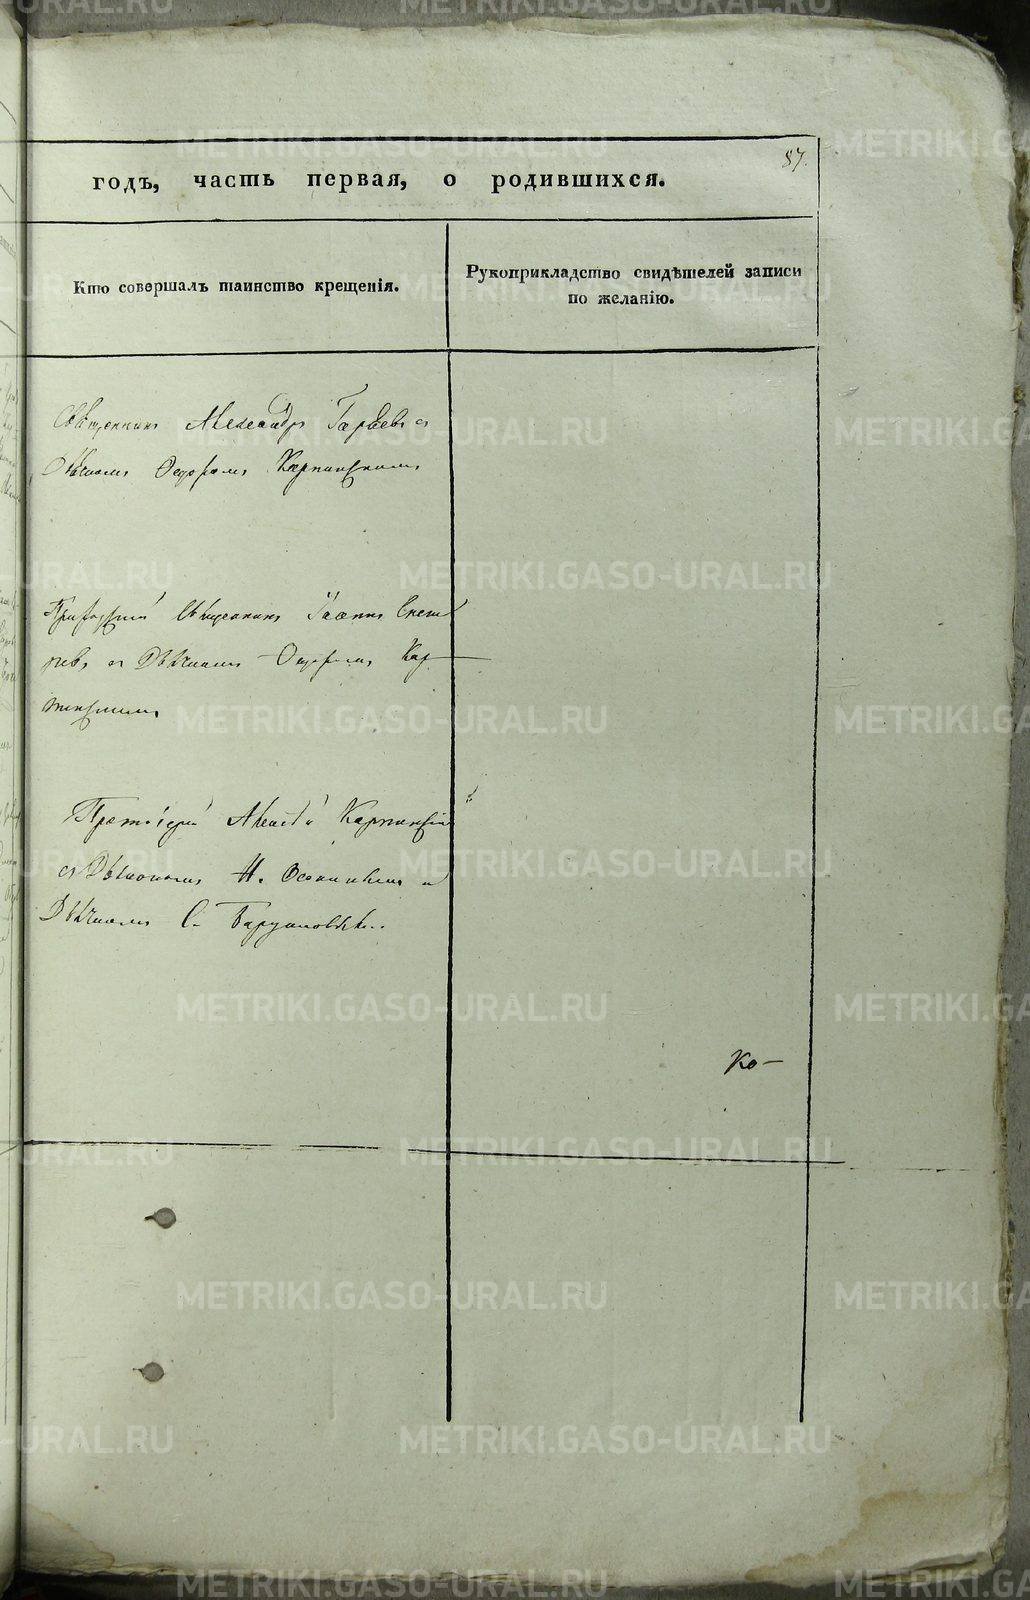 87.
годъ, часть первая, о родившихся.
Кто совершалъ таинство крещенія.
Рукоприкладство свидѣтелей записи
по желанію.
Священникъ Александръ съ
Дьячкомъ Федоромъ Карпинскимъ
Приходскій Священникъ Іоаннъ
съ Дьячкомъ Федоромъ Кар
пинскимъ
Протоіерей Алексѣй Карпинскій
съ Діакономъ Н. и
Дьячкомъ С.
Ко-
METRIKI.GASO-URAL.RU